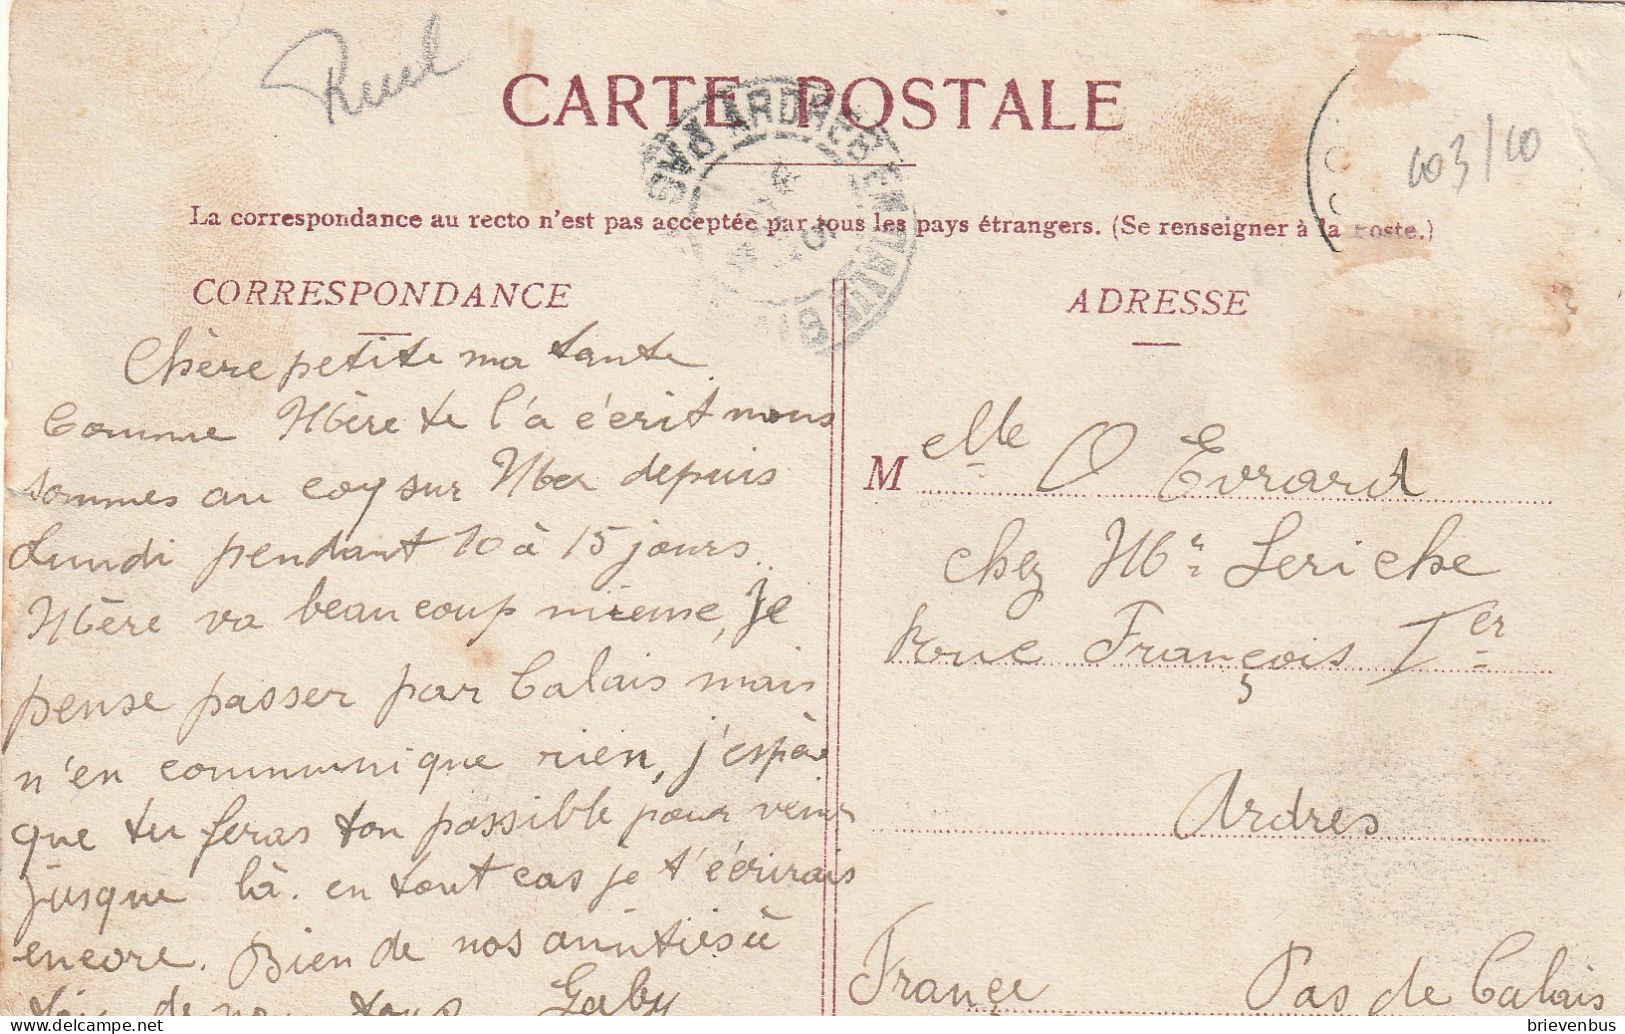 Ruel
CARTE POSTALE
ARDRES EN
PAS
103/10
La correspondance au recto n'est pas acceptée par tous les pays étrangers. (Se renseigner à la poste.)
CORRESPONDANCE
Chère petite ma tante
Comme Mère te l'a écrit nous
sommes au coq sur Mer depuis
Lundi pendant 10 à 15 jours..
Mère va beaucoup mieuse, je
pense passer par Calais mais
n'en communique rien, j'espère
que tu feras ton possible pour venir
jusque là. en tout cas je t'écrirais
encore. Bien de nos amitiés à
toi de nous tous Gaby
ADRESSE
Melle O Evrard
chez Mr Leriche
Rue François Ier
Ardres
France Pas de Calais
delcampe.net
brievenbus